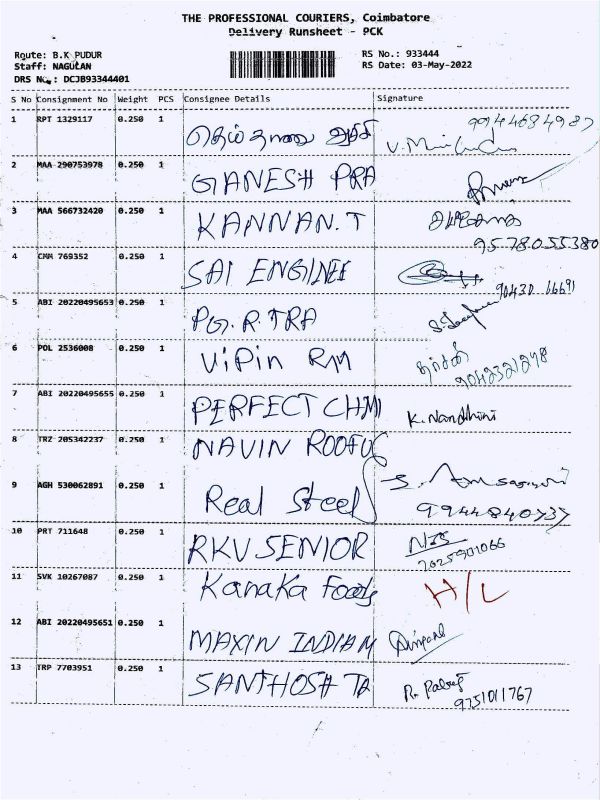 THE PROFESSIONAL COURIERS, Coimbatore
Delivery Runsheet - PCK
Route: B.K PUDUR
RS No.: 933444
Staff: NAGULAN
RS Date: 03-May-2022
DRS No.: DCJB93344401
S No Consignment No Weight PCS Consignee Details Signature
1 RPT 1329117 0.250 1 9944684987
2 MAA 290753978 0.250 1 GANESH PRA
3 MAA 566732420 0.250 1 KANNAN.T
9578055380
4 CMM 769352 0.250 1 SAI ENGINEE
90430 16691
5 ABI 20220495653 0.250 1 PG.R.TRA
6 POL 2536008 0.250 1 ViPin RM
7 ABI 20220495655 0.250 1 PERFECT CHMI K. Nandhini
8 TRZ 205342237 0.250 1 NAVIN ROOFUG
9 AGH 530062891 0.250 1 Real Steel
9944840737
10 PRT 711648 0.250 1 RKV SENIOR
7025901066
11 SVK 10267087 0.250 1 Kanaka Foods H/L
12 ABI 20220495651 0.250 1 MAXIN INDIAM
13 TRP 7703951 0.250 1 SANTHOSH TA
9751011767